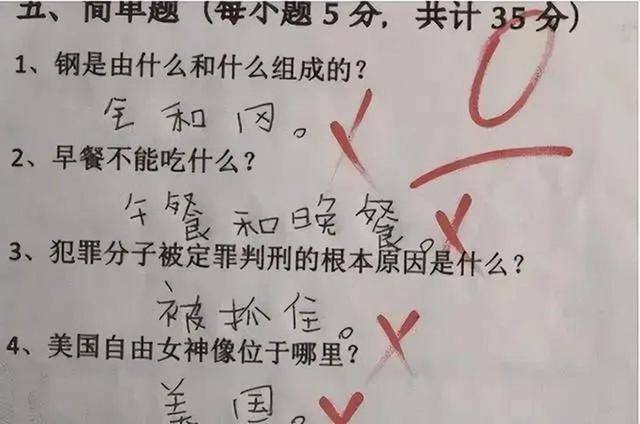 五、简单题（每小题 5 分，共计 35 分）
0
1、钢是由什么和什么组成的？
全和冈。
2、早餐不能吃什么？
午餐和晚餐。
3、犯罪分子被定罪判刑的根本原因是什么？
被抓住。
4、美国自由女神像位于哪里？
美国。